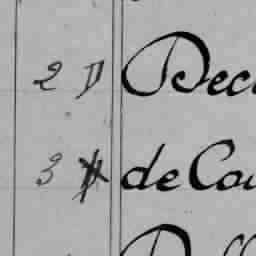 2 D Dec
3 de Cou